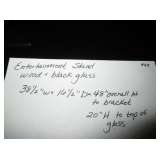 Entertainment Stand
wood + black glass
38½"w × 16½" D × 48" overall ht
to bracket
20" H to top of
glass